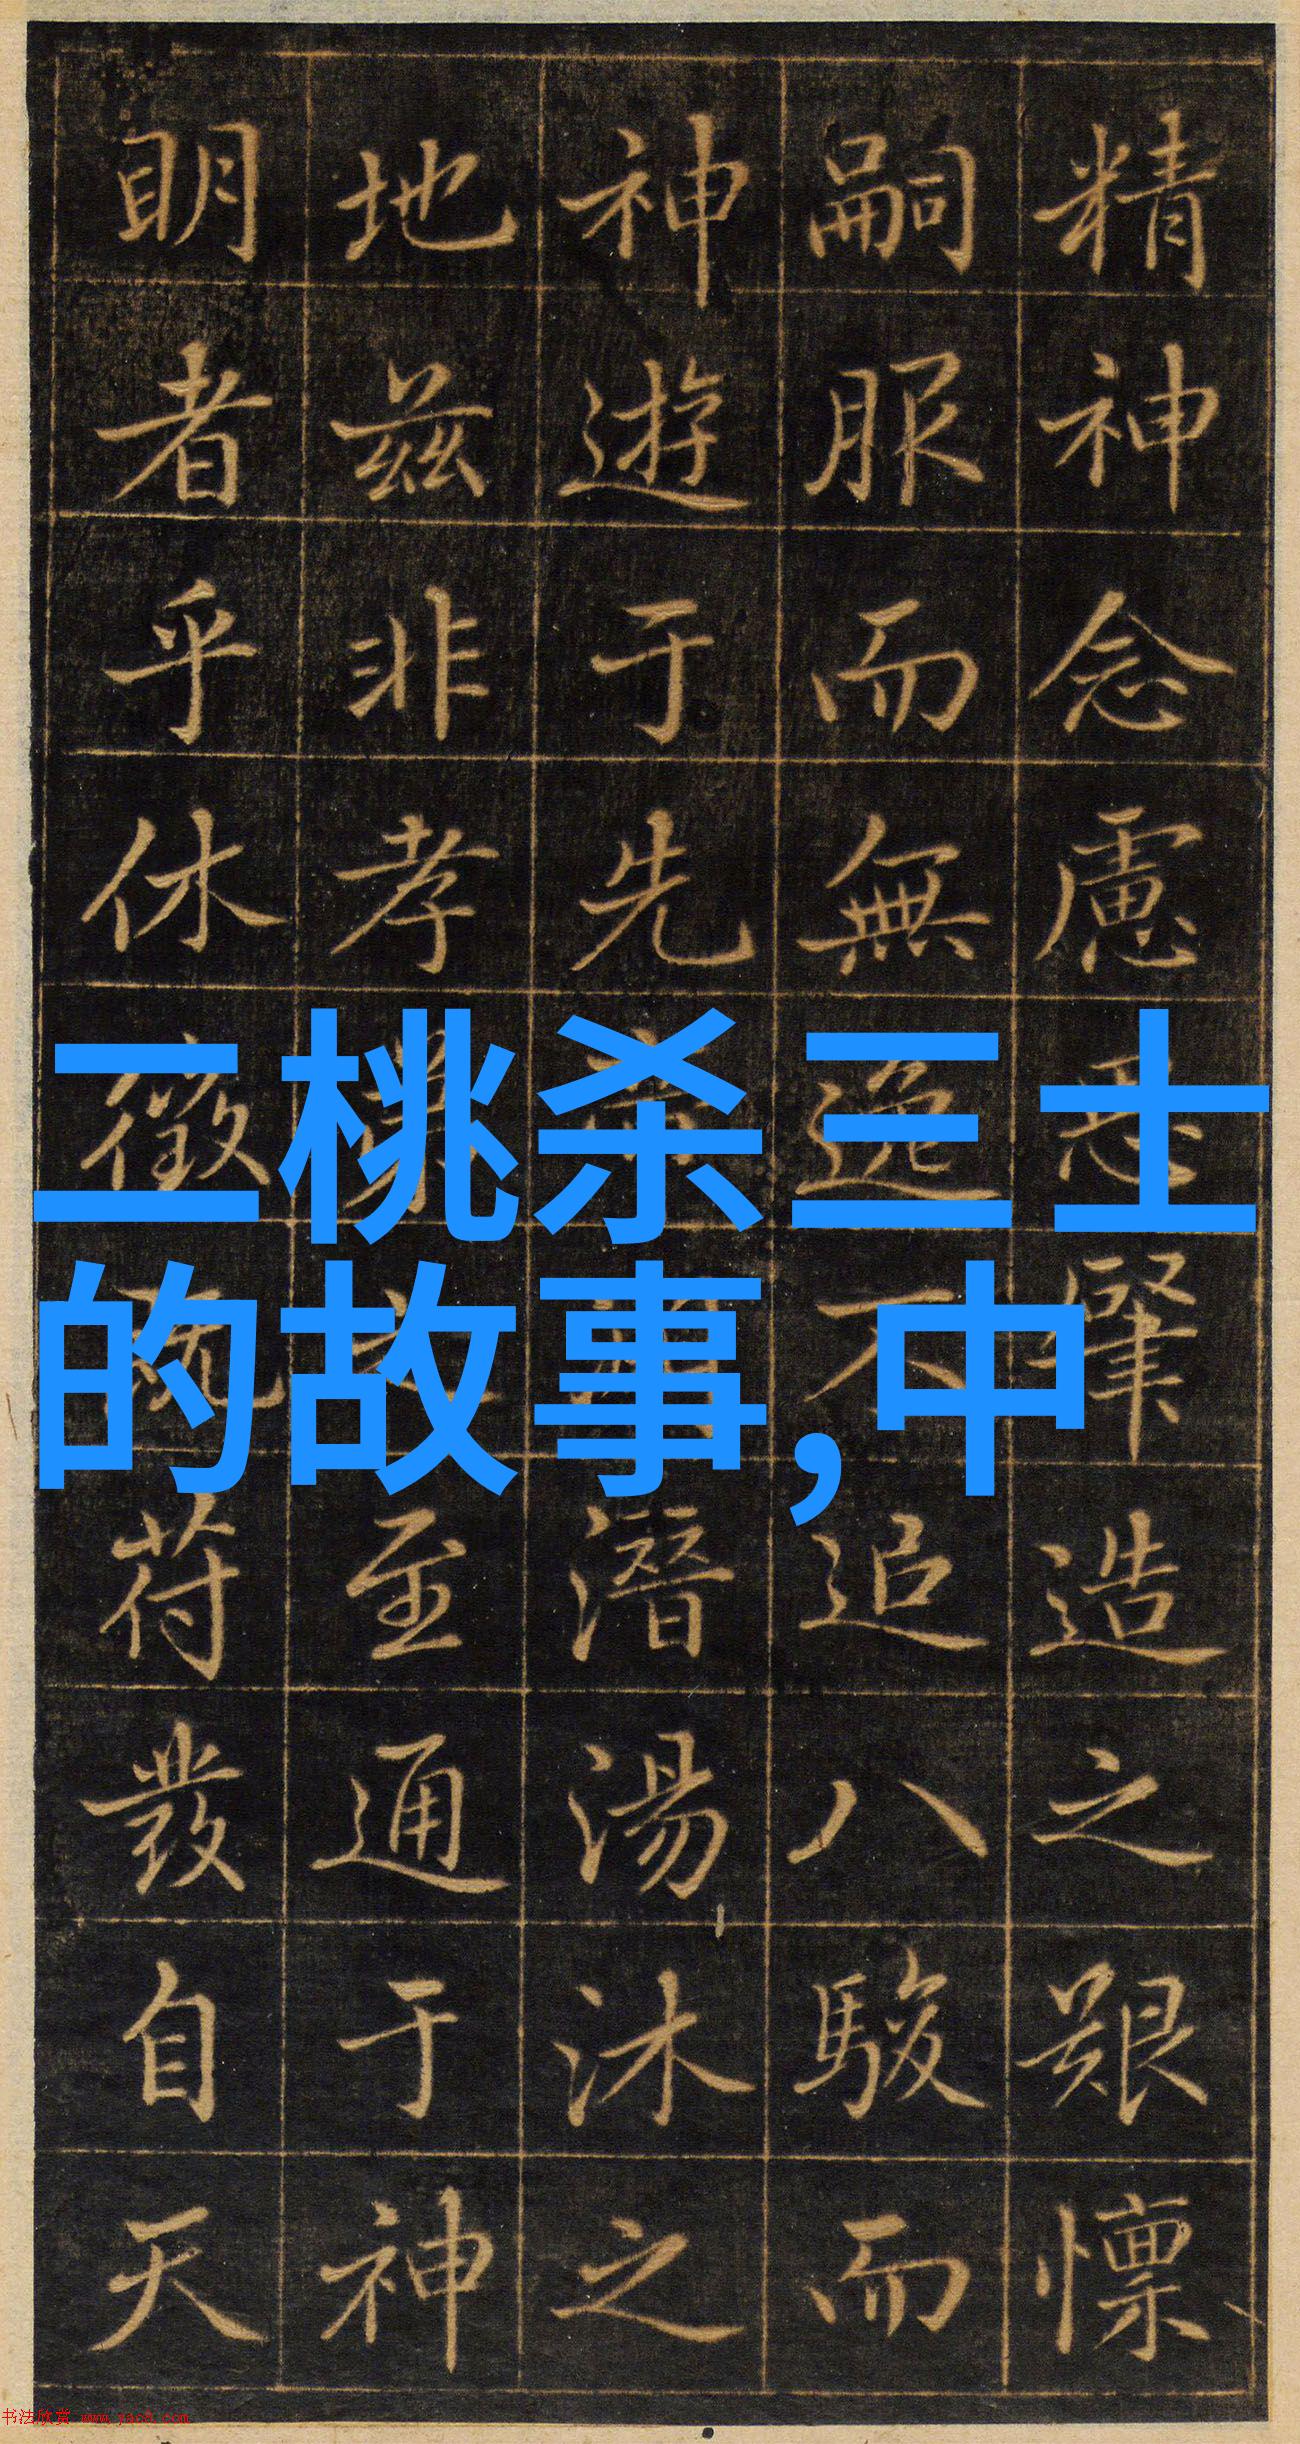 精神念慮肇造之艱懍
嗣服而無逸不追八駿而
神遊于先潛湯沐之
地茲非孝之至通于神
明者乎休徵既苻發自天
二桃杀三士
的故事,中
书法欣赏 www.yac8.com